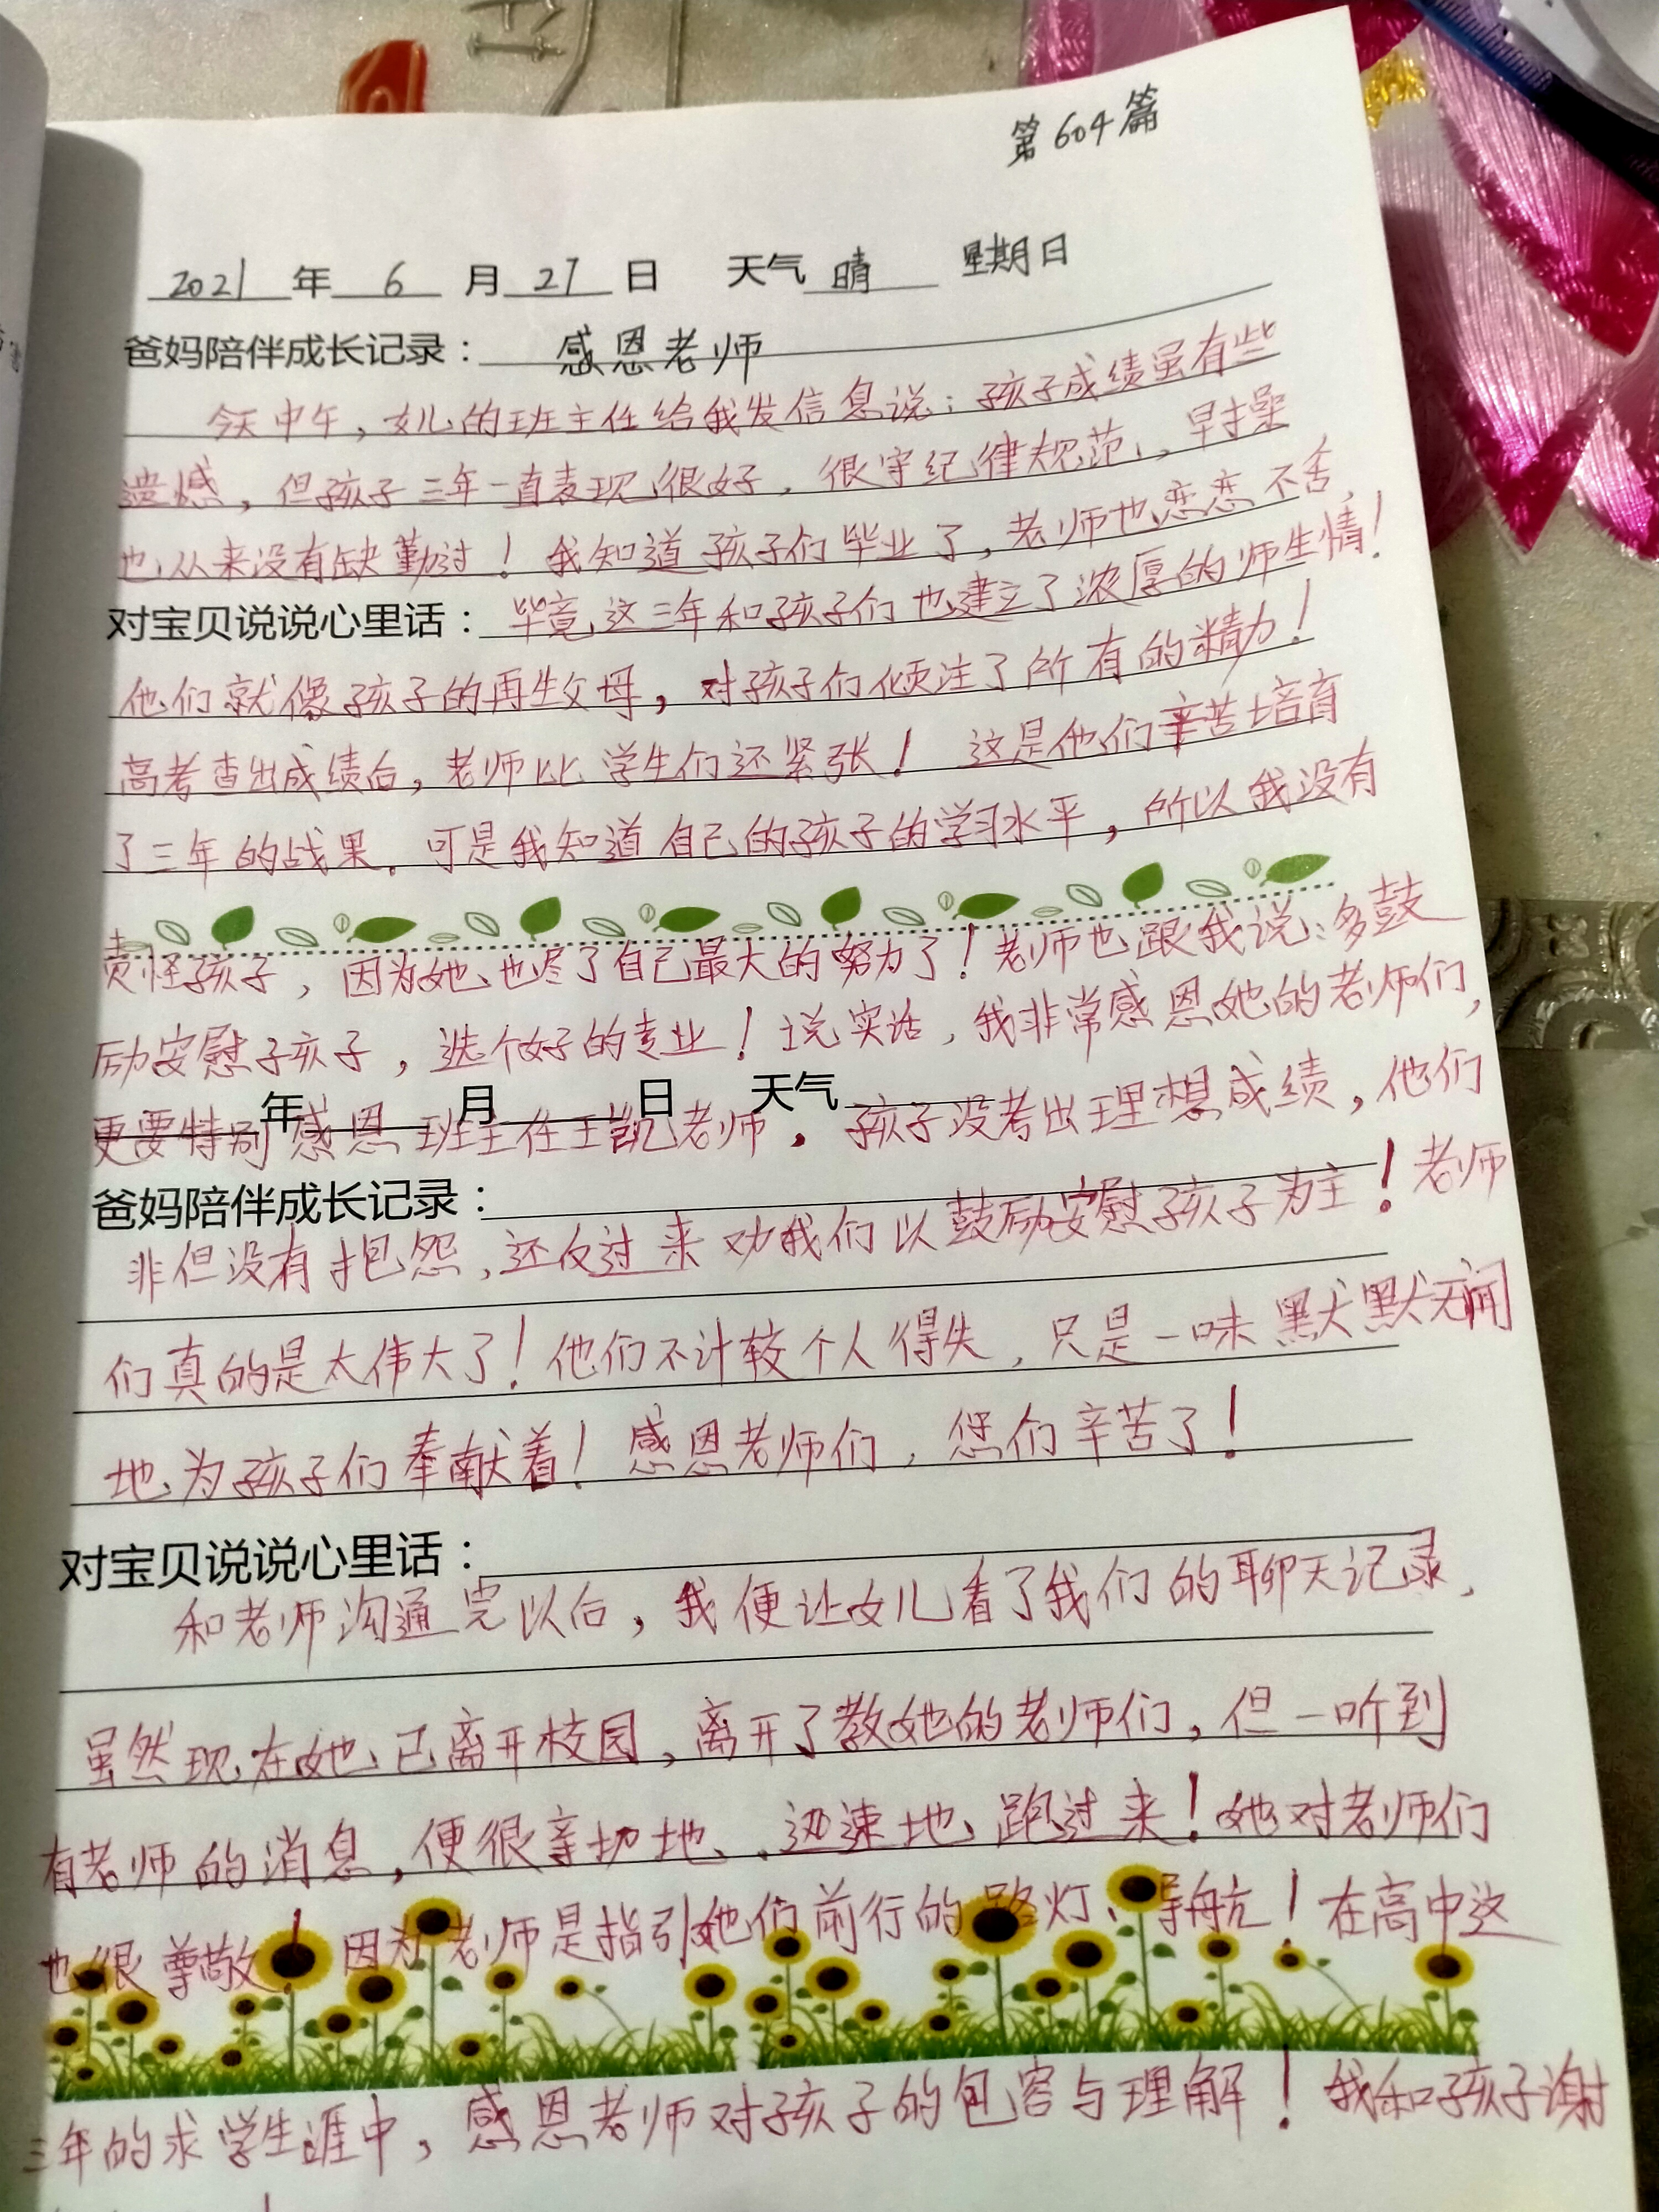 第604篇
2021年6月27日 天气晴 星期日
爸妈陪伴成长记录：感恩老师
今天中午，女儿的班主任给我发信息说：孩子成绩虽有些
遗憾，但孩子三年一直表现很好，很守纪律规范，早操
也从来没有缺勤过！我知道孩子们毕业了，老师也恋恋不舍，
对宝贝说说心里话：毕竟这三年和孩子们也建立了浓厚的师生情！
他们就像孩子的再生父母，对孩子们倾注了所有的精力！
高考查出成绩后，老师比学生们还紧张！这是他们辛苦培育
了三年的战果。可是我知道自己的孩子的学习水平，所以我没有
责怪孩子，因为她也尽了自己最大的努力了！老师也跟我说：多鼓
励安慰子孩子，选个好的专业！说实话，我非常感恩她的老师们，
年 月 日 天气
更要特别感恩班主任王凯老师，孩子没考出理想成绩，他们
爸妈陪伴成长记录：
非但没有抱怨，还反过来劝我们以鼓励安慰孩子为主！老师
们真的是太伟大了！他们不计较个人得失，只是一味默默无闻
地为孩子们奉献着！感恩老师们，您们辛苦了！
对宝贝说说心里话：
和老师沟通完以后，我便让女儿看了我们的聊天记录，
虽然现在她已离开校园，离开了教她的老师们，但一听到
有老师的消息，便很亲切地、迅速地跑过来！她对老师们
也很尊敬！因为老师是指引她们前行的路灯、导航！在高中这
三年的求学生涯中，感恩老师对孩子的包容与理解！我和孩子谢